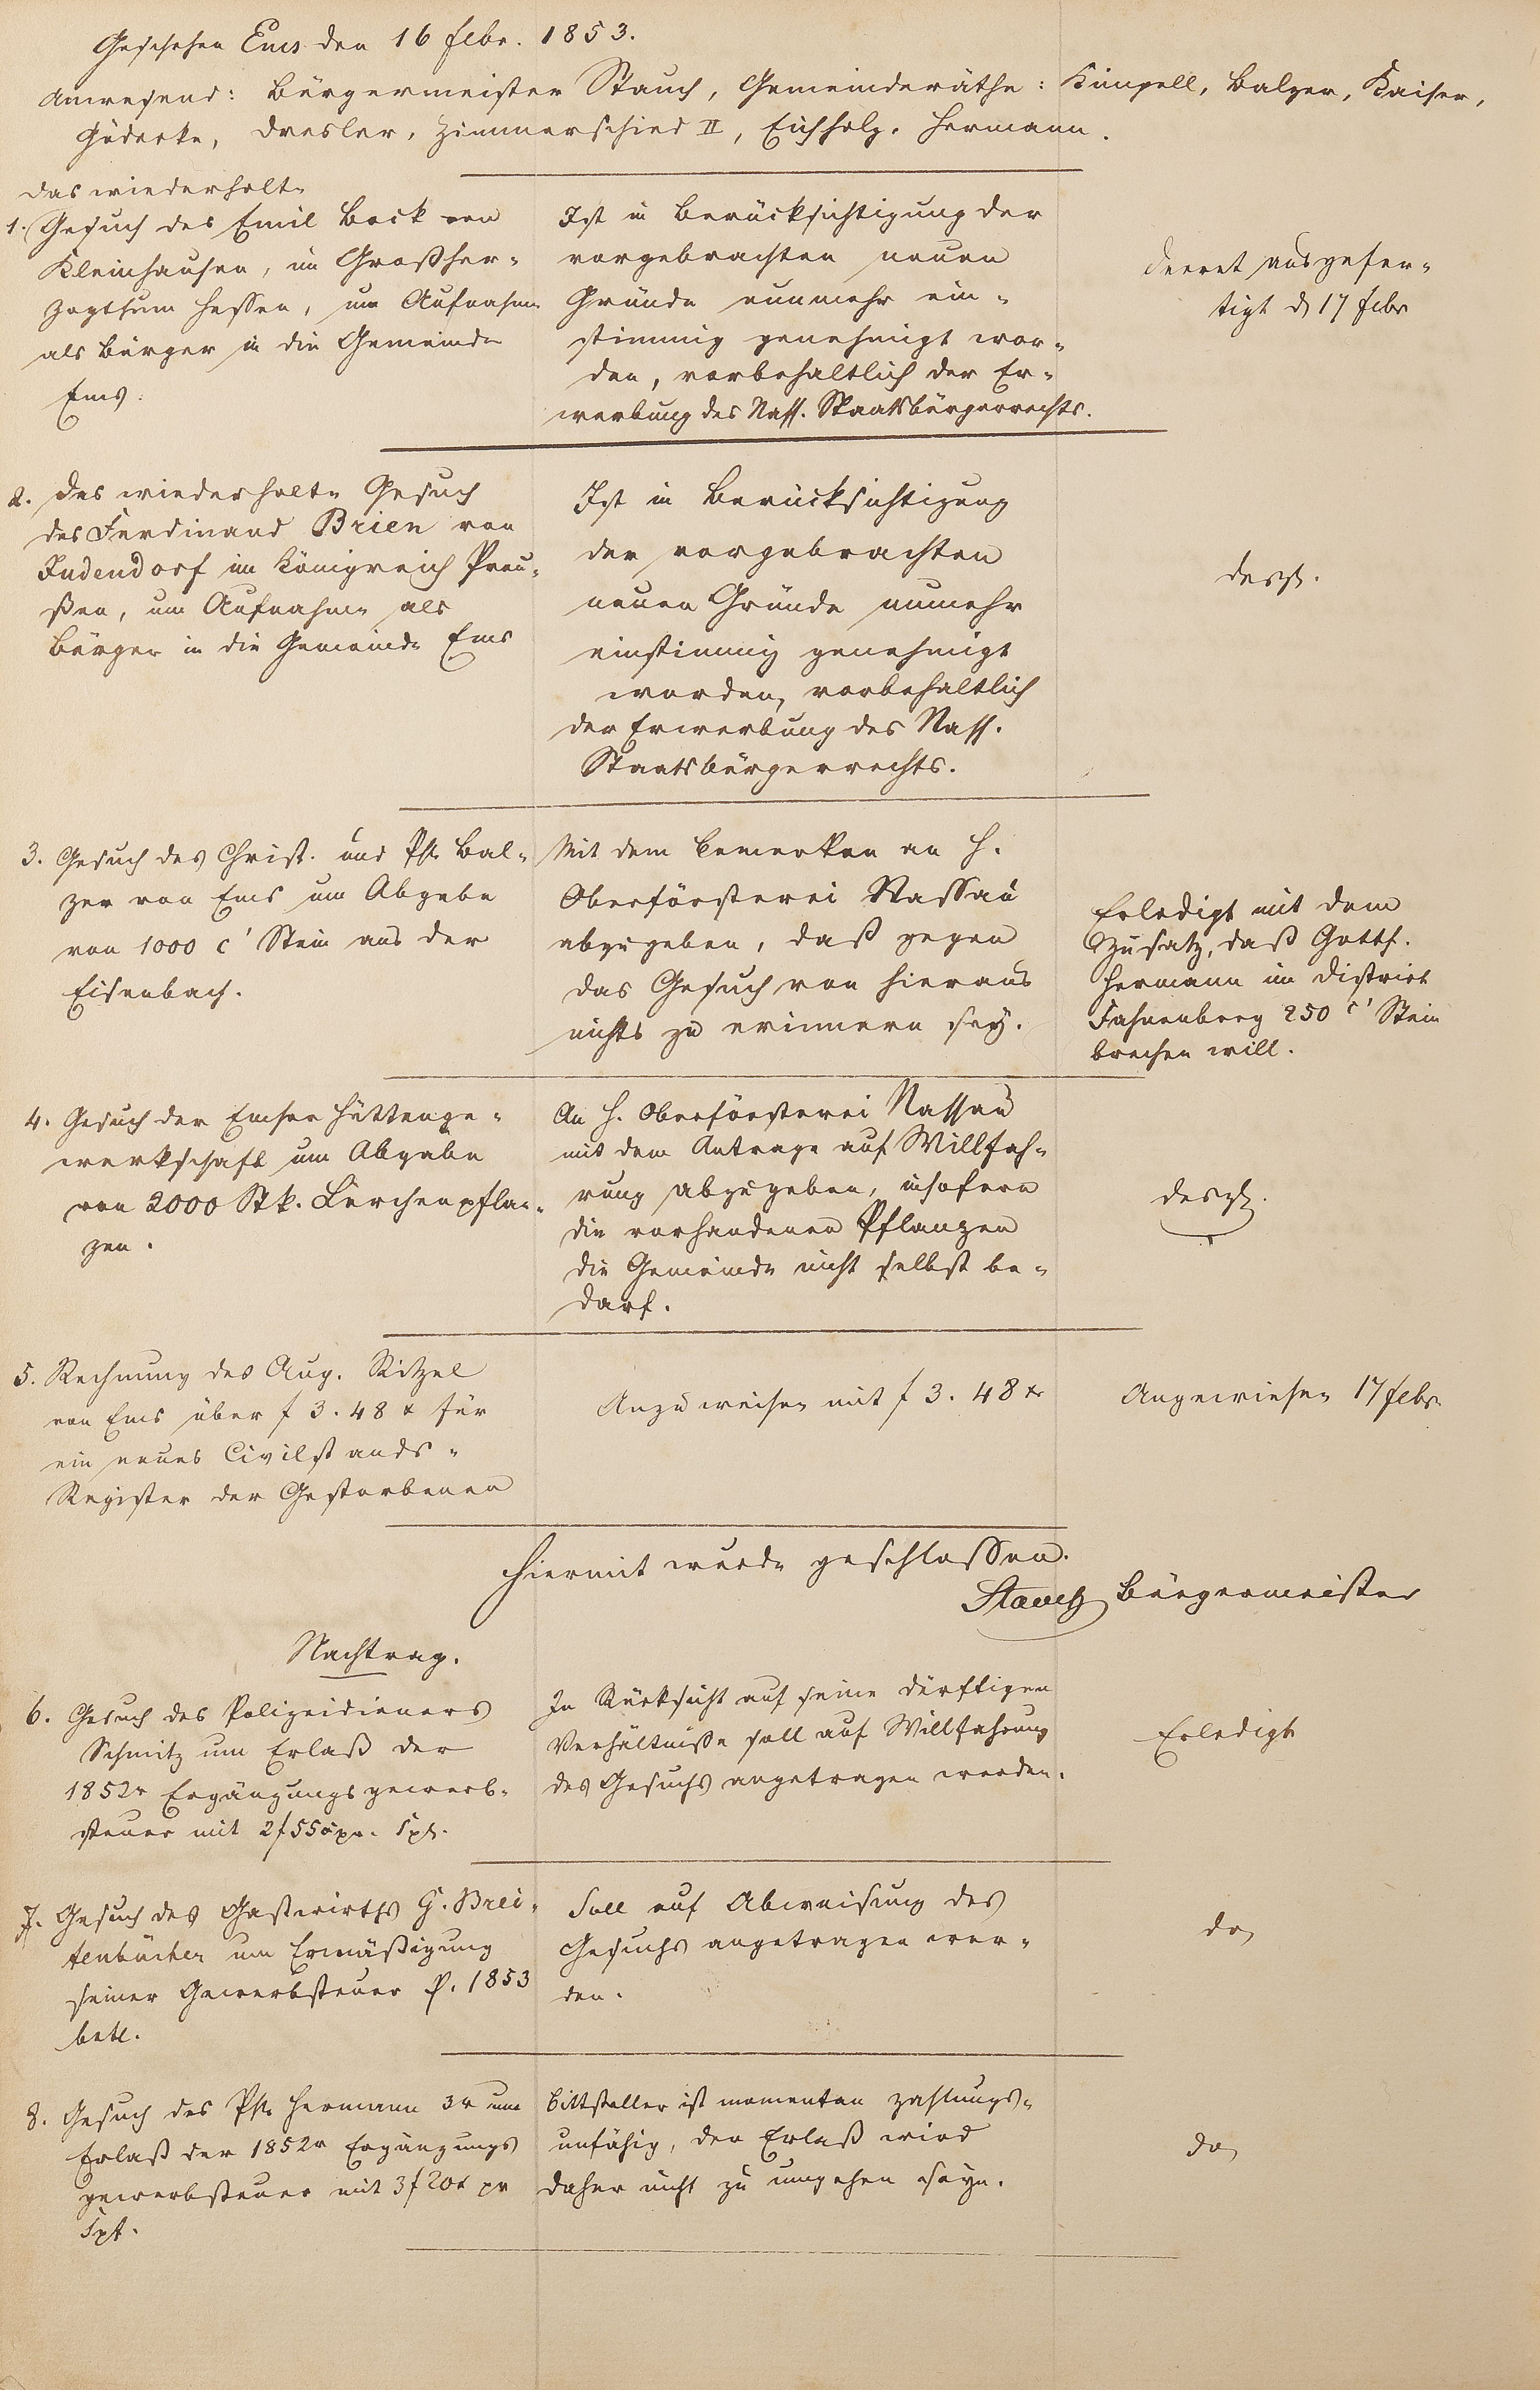 Geschehen Ems den 16 febr. 1853.
Anwesend: Bürgermeister Stauch, Gemeinderäthe: Kimpell, Balzer, Kaiser,
Gödecke, Dresler, Zimmerschied II, Eichholz, Hermann.
Das wiederholte
1. Gesuch des Emil Bock von
Kleinhausen, im Großher-
zogthum Hessen, um Aufnahme
als Bürger in die Gemeinde
Ems.
Ist in Berücksichtigung der
vorgebrachten neuen
Gründe nunmehr ein-
stimmig genehmigt wor-
den, vorbehaltlich der Er-
werbung des Nass. Staatsbürgerrechts.
Decret ausgefer-
tigt d 17 febr
2. Das wiederholte Gesuch
des Ferdinand Brien von
Judendorf im Königreich Preu-
ßen, um Aufnahme als
Bürger in die Gemeinde Ems
Ist in Berücksichtigung
der vorgebrachten
neuen Gründe numehr
einstimmig genehmigt
worden, vorbehaltlich
der Erwerbung des Nass.
Staatsbürgerrechts.
desgl.
3. Gesuch des Christ. und Ph. Bal-
zer von Ems um Abgabe
von 1000 c' Stein aus der
Eisenbach.
Mit dem Bemerken an H.
Oberförsterei Nassau
abzugeben, daß gegen
das Gesuch von hieraus
nichts zu erinnern sey.
Erledigt mit dem
Zusatz, daß Gottf.
Hermann im District
Fahnenberg 250 c' Stein
brechen will.
4. Gesuch der Emser Hüttenge-
werkschaft um Abgabe
von 2000 Stk. Lerchenpflan-
zen.
An H. Oberförsterei Nassau
mit dem Antrage auf Willfah-
rung abzugeben, insofern
die vorhandenen Pflanzen
die Gemeinde nicht selbst be-
darf.
desgl.
5. Rechnung des Aug. Ritzel
von Ems über f 3. 48 x für
ein neues Civilstands-
Register der Gestorbenen
Anzuweisen mit f 3. 48 xr
Angewiesen 17 febr.
Hiermit wurde geschlossen.
Stauch Bürgermeister
Nachtrag.
6. Gesuch des Polizeidieners
Schmitz um Erlaß der
1852r Ergänzungsgewerb-
steuer mit 2f 55x pr. Spl.
In Rücksicht auf seine dürftigen
Verhältniße soll auf Willfahrung
des Gesuchs angetragen werden.
Erledigt
7. Gesuch des Gastwirths G. Brei-
tenbücher um Ermäßigung
seiner Gewerbsteuer p. 1853
betl.
Soll auf Abweisung des
Gesuchs angetragen wer-
den.
do
8. Gesuch des Ph. Hermann 3r um
Erlaß der 1852r Ergänzungs
gewerbsteuer mit 3f 20x pr
Spl.
Bittsteller ist momentan zahlungs-
unfähig, der Erlaß wird
daher nicht zu umgehen seyn.
do